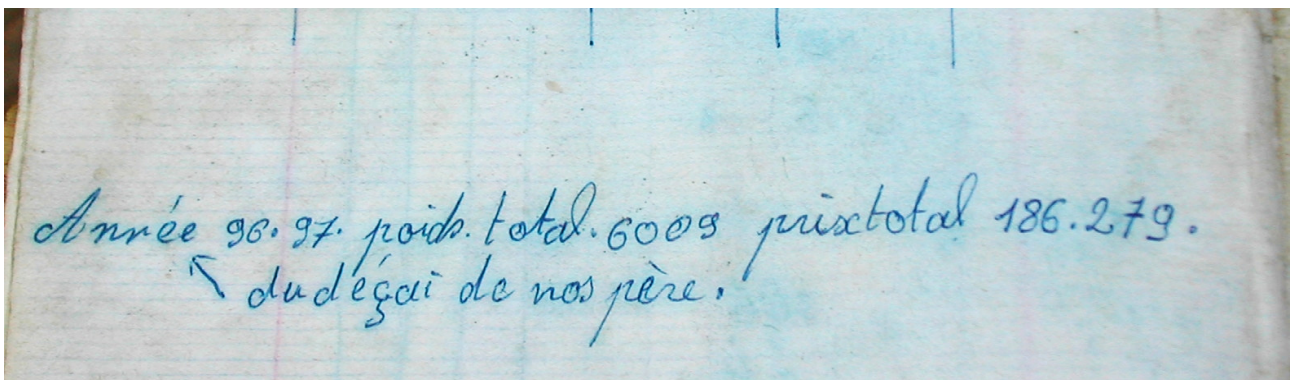 Année 96.97. poids. total. 6009 prixtotal 186.279.
dudéçai de nos père.